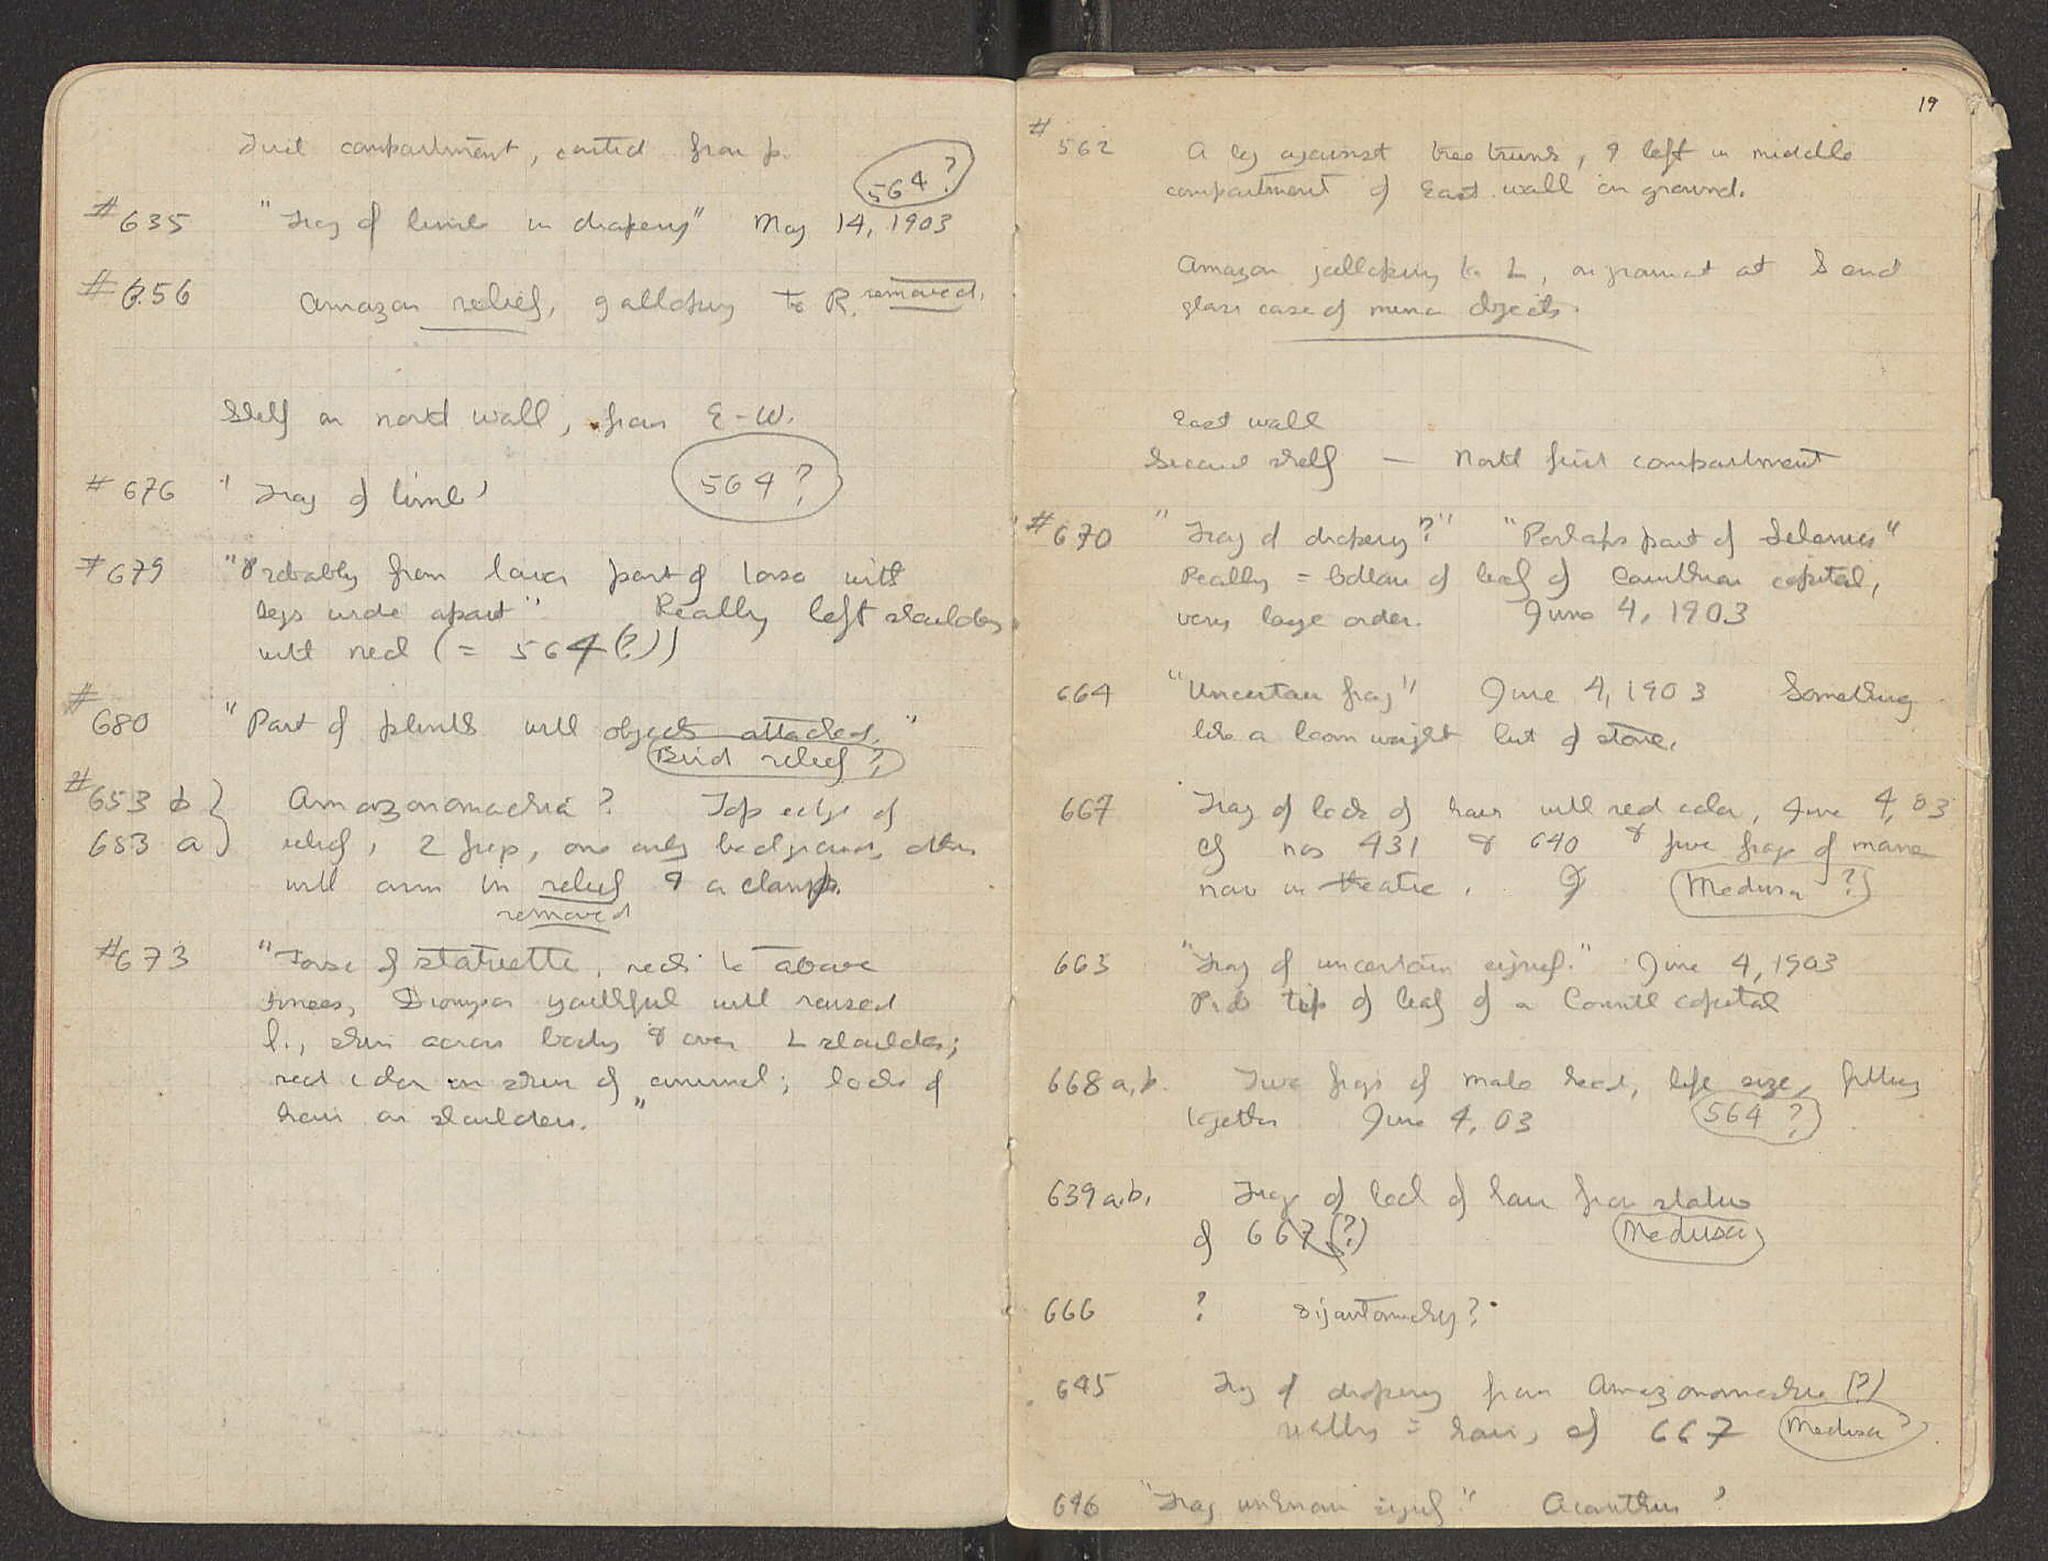 First compartment, contd from p.
564?
#635 "Frag of limb in drapery" May 14, 1903
#656 Amazon relief, galloping to R. removed.
Shelf on north wall, from E-W.
#676 'Frag of limb' 564?
#679 "Probably from lower part of torso with
legs wide apart" Really left shoulder
with neck (= 564(?))
#680 "Part of plinth with objects attached."
Bird relief?
#653 b } Amazonomachia? Top edge of
653 a } relief, 2 frags, one only background, other
with arm in relief & a clamp.
removed
#673 "Torso of statuette, neck to above
knees, Dionysos youthful with raised
l., skin across body & over L shoulder;
red color on skin of animal; locks of
hair on shoulders."
19
#562 A leg against tree trunk, & left in middle
compartment of East wall on ground.
Amazon galloping to L, on ground at S end
glass case of minor objects.
East wall
Second shelf — North first compartment
"#670 "Frag of drapery?" "Perhaps part of Selenus"
Really = bottom of leaf of Corinthian capital,
very large order. June 4, 1903
664 "Uncertain frag" June 4, 1903 Something
like a loom weight but of stone.
667 Frag of lock of hair with red color, June 4, 03
cf nos 431 & 640 & five frags of mane
now in theatre. Medusa?
663 "Frag of uncertain signif." June 4, 1903
Prob tip of leaf of a Corinth capital
668 a, b. Two frags of male head, life size, fitting
together June 4, 03 564?
639 a.b. Frags of lock of hair from statue
of 667(?) Medusa
666 ? Gigantomachy?
645 Frag of drapery from Amazonomachia (?)
really = hair, cf 667 Medusa?
646 "Frag unknown signif" Acanthus?